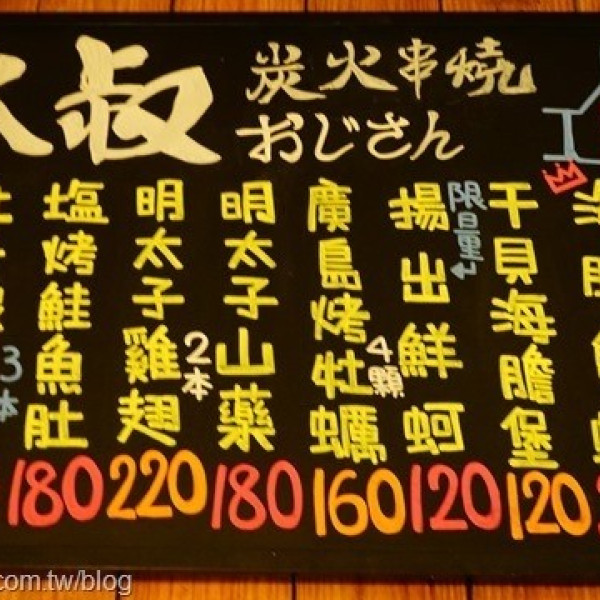 叔
炭火串燒
おじさん
塩烤鮭魚肚
180
明太子雞翅
2本
220
明太子山藥
180
廣島烤牡蠣
4顆
160
揚出鮮蚵
限量
120
干貝海膽堡
120
3本
.com.tw/blog